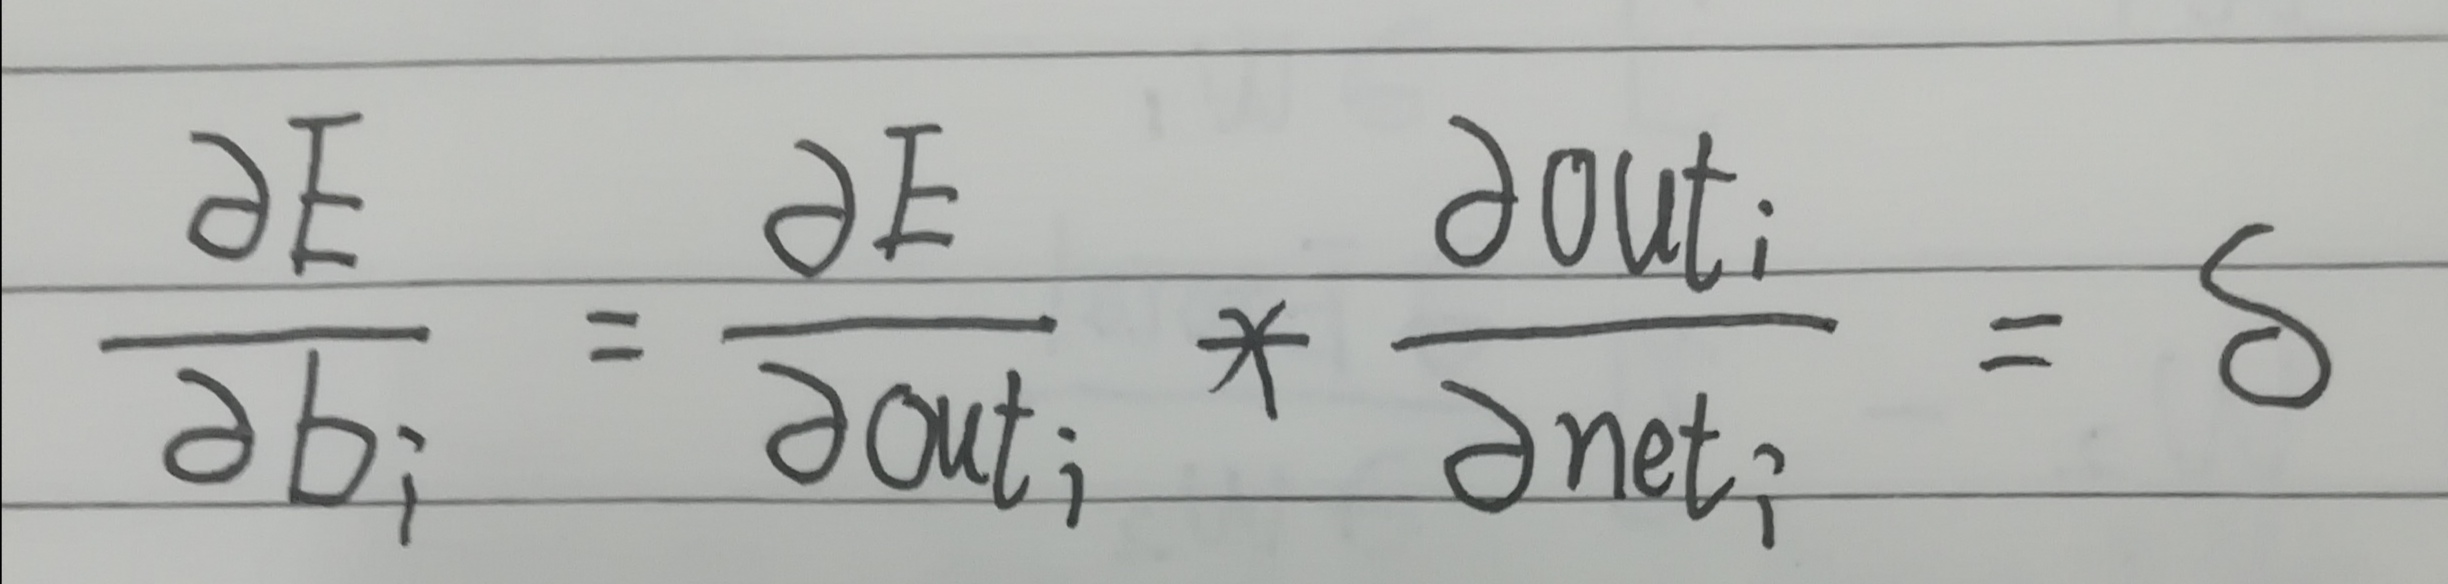 ∂E/∂bᵢ = ∂E/∂outᵢ * ∂outᵢ/∂netᵢ = δ